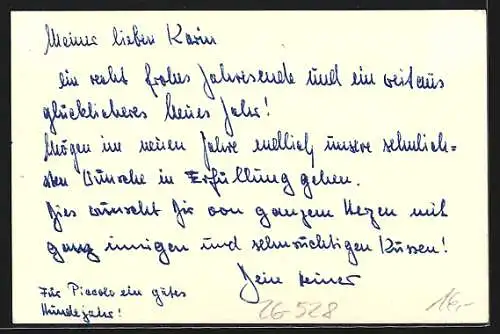 Meiner lieben Karin
ein recht frohes Jahresende und ein weitaus
glücklicheres Neues Jahr!
Mögen im neuen Jahre endlich unsere sehnlich=
sten Wünsche in Erfüllung gehen.
Dies wünscht Dir von ganzem Herzen mit
ganz innigen und sehnsüchtigen Küssen!
Dein
Für Piccolo ein gutes
Hundejahr!
26-528
16,-